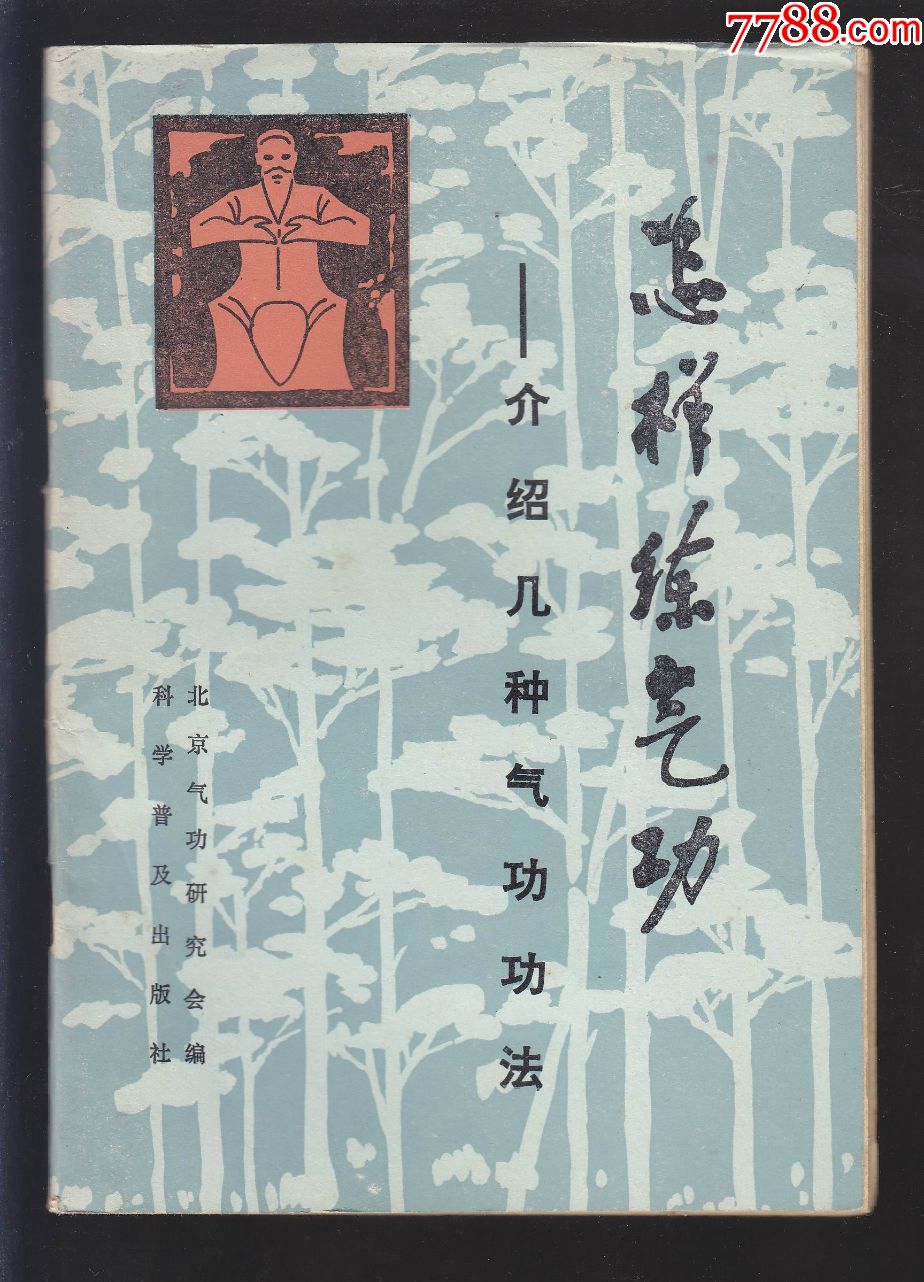 7788.com
怎样练气功
——介绍几种气功功法
北京气功研究会编
科学普及出版社